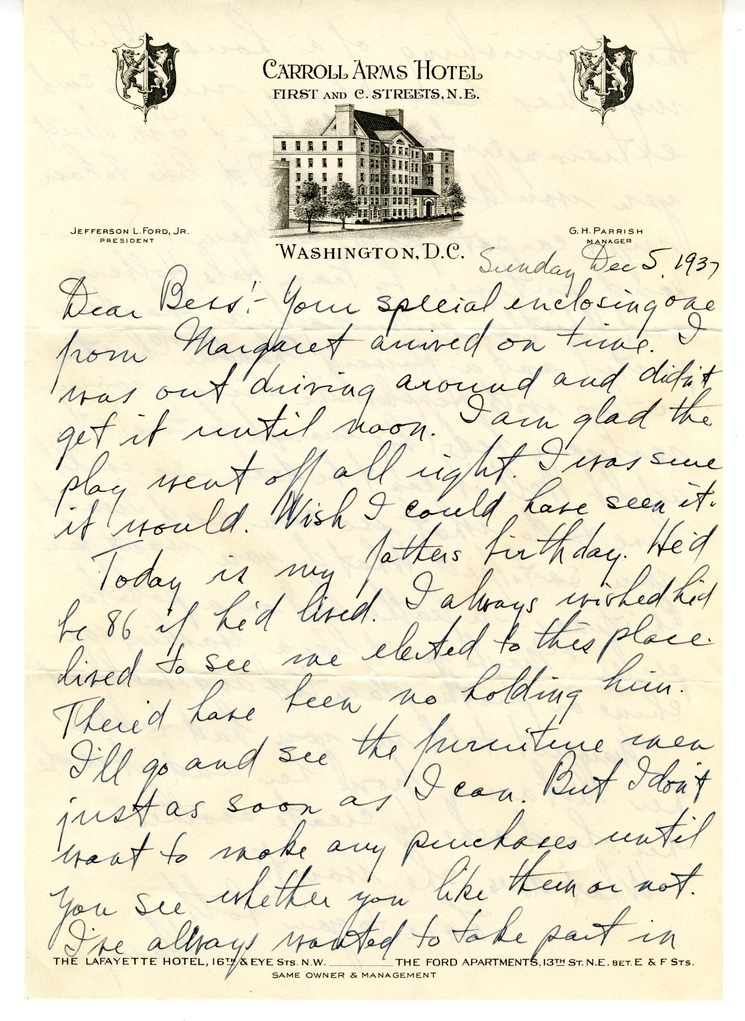 CARROLL ARMS HOTEL
FIRST AND C. STREETS, N.E.
JEFFERSON L. FORD, JR.
PRESIDENT
G. H. PARRISH
MANAGER
WASHINGTON, D.C.
Sunday Dec 5, 1937
Dear Bess:- Your special enclosing one
from Margaret arrived on time. I
was out driving around and didn't
get it until noon. I am glad the
play went off all right. I was sure
it would. Wish I could have seen it.
Today is my fathers birthday. He'd
be 86 if he'd lived. I always wished he'd
lived to see me elected to this place.
There'd have been no holding him.
I'll go and see the furniture men
just as soon as I can. But I don't
want to make any purchases until
you see whether you like them or not.
I've always wanted to take part in
THE LAFAYETTE HOTEL, 16TH & EYE STS. N.W. THE FORD APARTMENTS, 13TH ST. N.E. BET. E & F STS.
SAME OWNER & MANAGEMENT